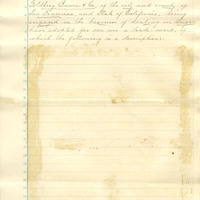 Goldberg Bowen & Co, of the city and county of
San Francisco and State of California, being
engaged in the business of dealing in
have adopted for our use a trade mark, of
which the following is a description: